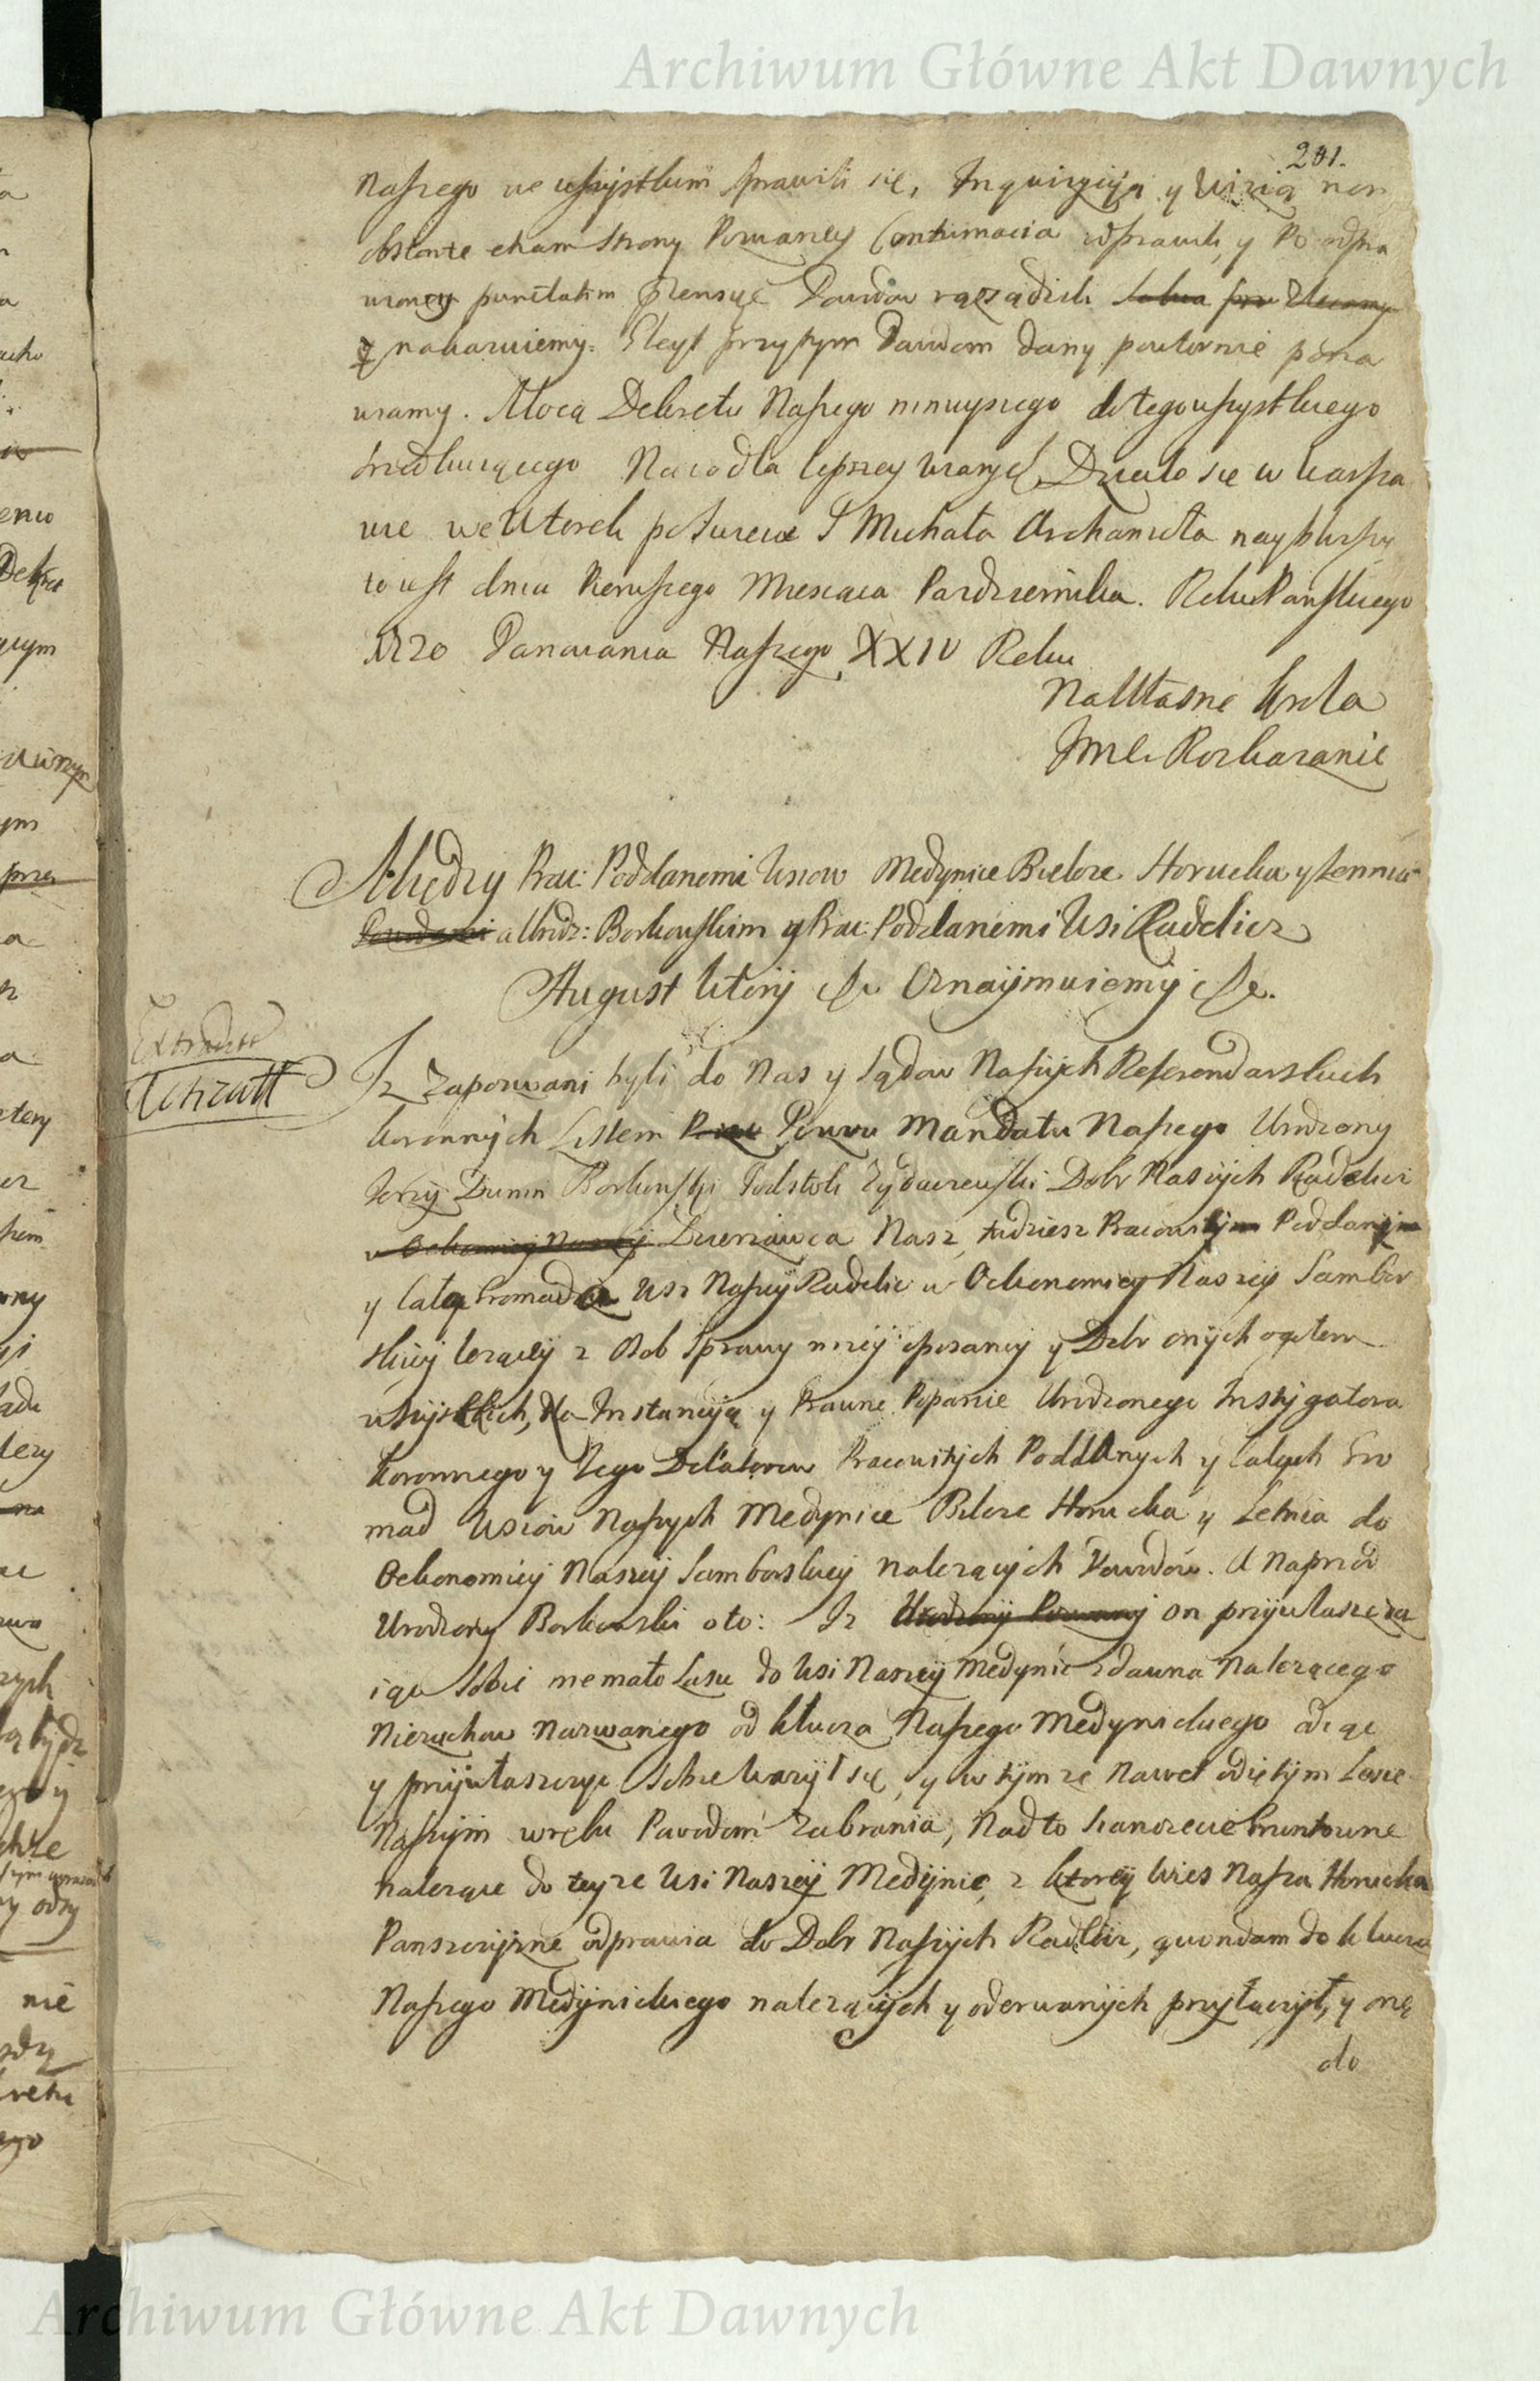 Archiwum Główne Akt Dawnych
201.
Naszego we wszystkim sprawili się, Inquizycyą y Wizią non
obstante etiam strony Pozwaney Contumacia odprawili, y Po odpra
woney punctatim Praensye Powodow rozsądzili Salva
y nakazuiemy. Gleyt przytym Powodom dany powtornie pona
wiamy. Mocą Dekretu Naszego ninieyszego do tego wszystkiego
Na co dla lepszey wiary & Działo się w Warsza
wie we Wtorek po Swięcie S Michała Archanioła naypierwszy
to iest dnia Pierwszego Miesiąca Pazdziernika. Roku Panskiego
1720 Panowania Naszego XXIV Roku
Na Własne Krola
Jmci Rozkazanie
Między Prac: Poddanemi Wsiow Medynice Bielcze Horucka y Letnia
Powodami a Urodz: Borkowskim y Prac: Poddanemi Wsi Radelicz
August Wtory &c Oznaymuiemy &c.
Extradit
Iz Zapozwani byli do Nas y Sądow Naszych Referendarskich
koronnych Listem Pozwu Mandatu Naszego Urodzony
Jerzy Dunin Borkowski Podstoli Zydaczewski Dobr Naszych Radelicz
w Oekonomiey Naszey Dzierzawca Nasz, tudziesz Pracowity Poddany
y Cała Gromada Wsi Naszey Radelic w Oekonomiey Naszey Sambor
skiey lezącey z Osob Sprawy nizey opisaney y Dobr onych ogołem
wszystkich, Na Instancyą y Prawne Poparcie Urodzonego Instygatora
Koronnego y Iego Delatorow Pracowitych Poddanych y Całych Gro
mad Wsiow Naszych Medynice Bilcze Horucka y Letnia do
Oekonomiey Naszey Samborskiey nalezących Powodow. A Naprzod
Urodzony Borkowski oto: Iz Urodzony Pozwany on przywłaszcza
iąc sobie niemało Lasu do Wsi Naszey Medynic zdawna Nalezącego
Nieruchow Nazwanego od klucza Naszego Medynickiego odiąć
y przywłaszczyć sobie Ważył się, y w tym ze Nawet odiętym Lesie
Naszym wrębu Powodom Zabrania, Nadto Sianozęcie Gruntowne
nalezące do teyze Wsi Naszey Medynic, z ktorey Wies Nasza Horucka
Panszczyznę odprawia do Dobr Naszych Radlicz, quondam do klucza
Naszego Medynickiego nalezących y oderwanych przyłaczył, y onę
do
Archiwum Główne Akt Dawnych